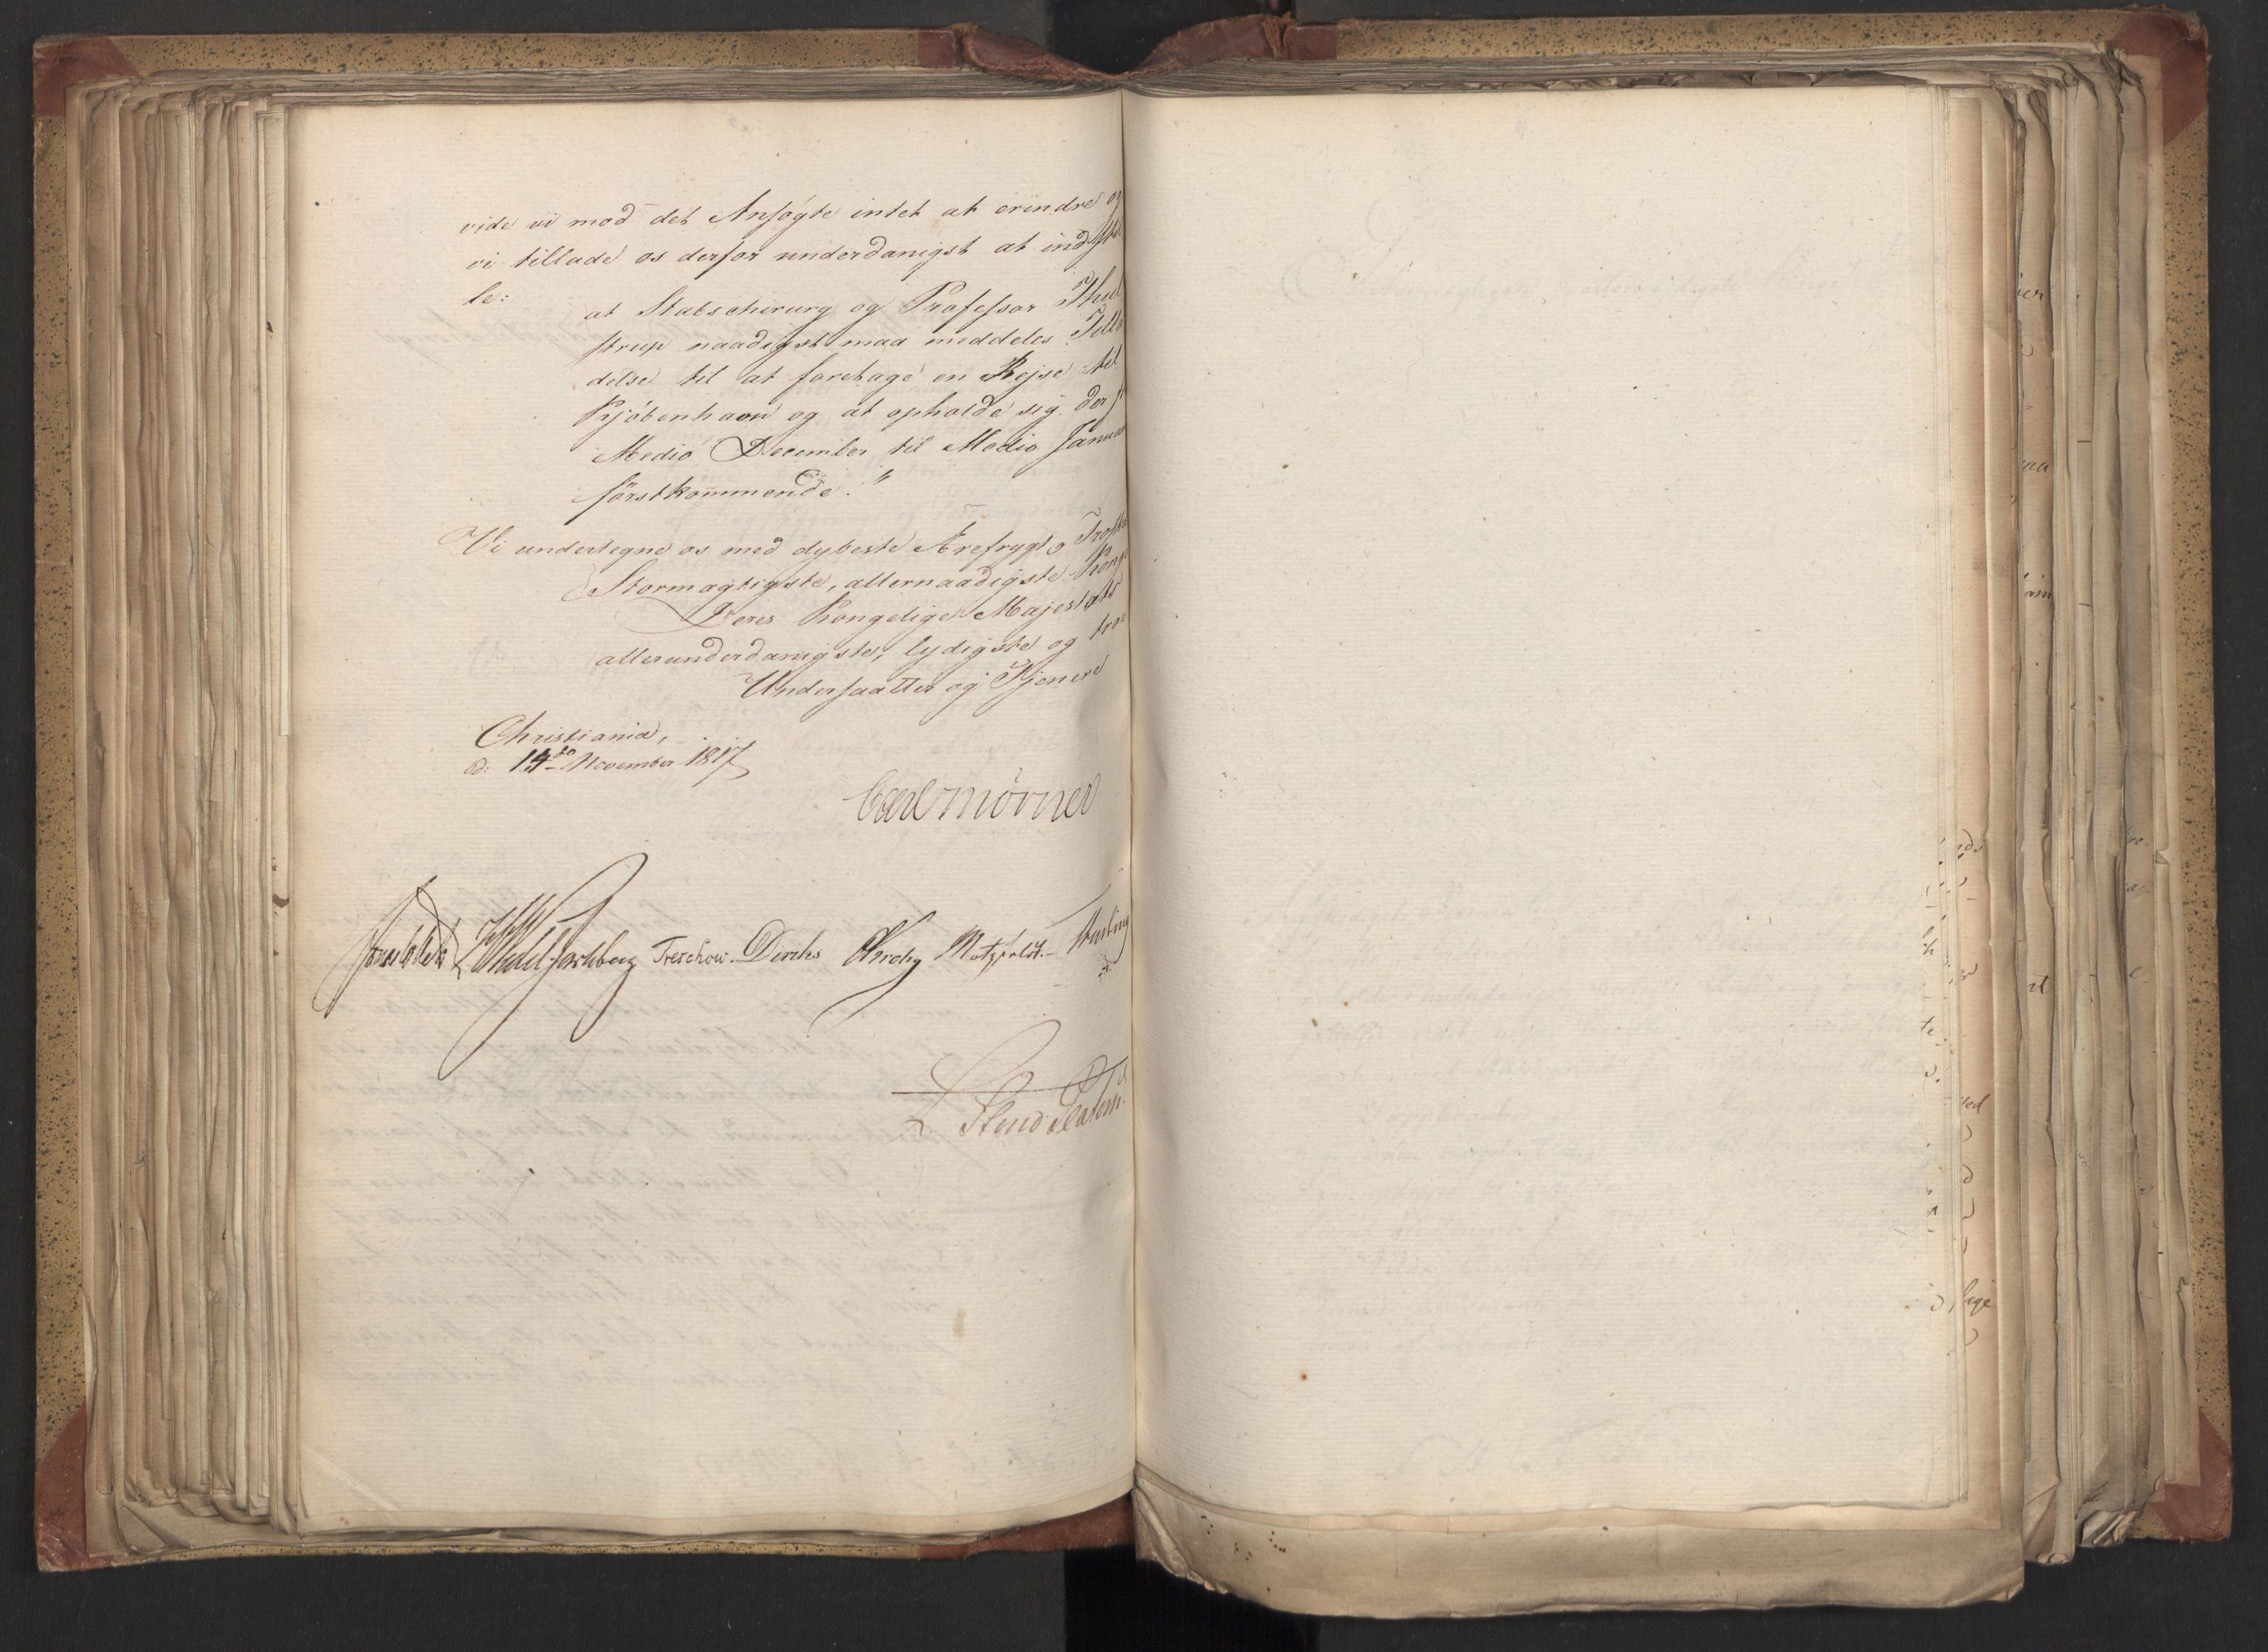 vide vi mod det Ansøgte intet at erindre og
vi tillade os derfor underdanigst at indstil
le:
at Stabschirurg og Professor Thul
strup naadigst maa meddeles Tilla
delse til at foretage en Rejse til
Kjøbenhavn og at opholde sig der f
Medio December til Medio Januar
førstkommende."
Vi undertegne os med dybeste Ærefrygt og Troska
Stormægtigste, allernaadigste Konge
Deres Kongelige Majestæts
allerunderdanigste, lydigste og troe
Undersaatter og Tjenere
Christiania,
d: 14de November 1817
Carl Mörner
Wedel-Jarlsberg Treschow. Diriks Krohg Motzfeldt.